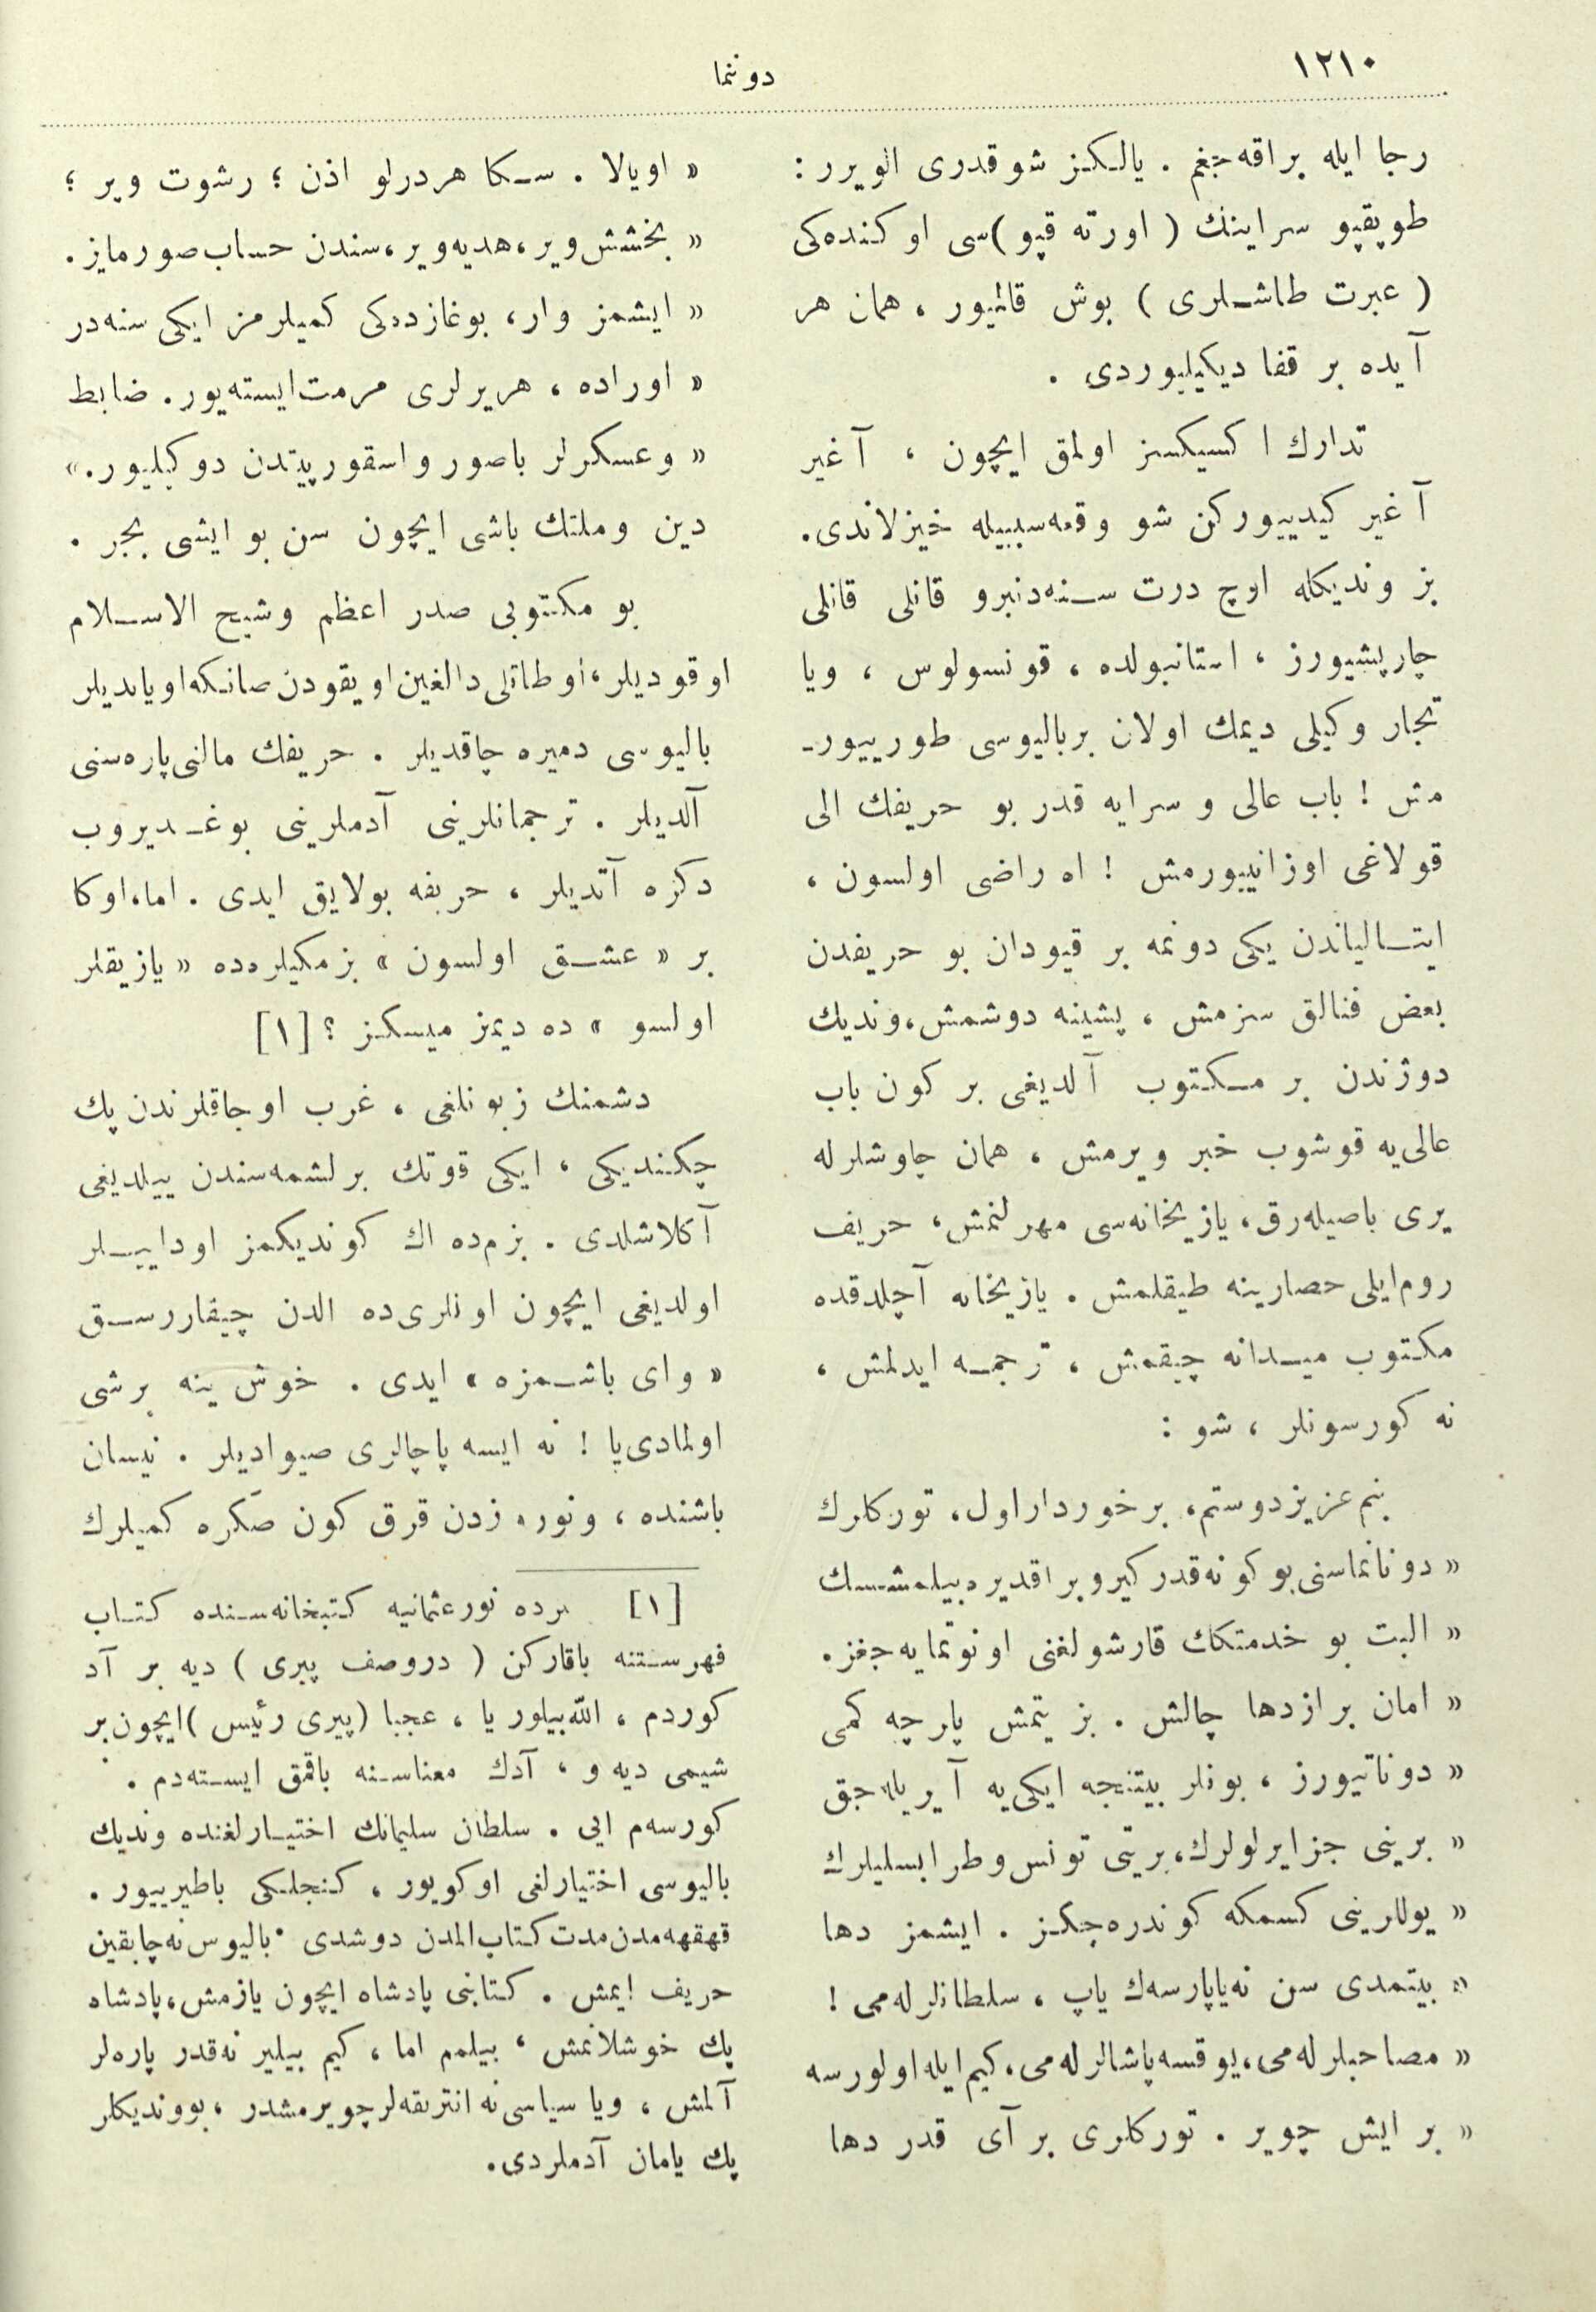 ١٢١٠
دوننما
رجا ايله براقه جغم . يالـكـز شو قدرى الويرر :
طوپقپو سراينك ( اورته قپو )سى اوكنده كى
( عبرت طاشـلرى ) بوش قالميور ، همان هر
آيده بر قفا ديكيليوردى .
تدارك اكسيكسز اولمق ايچون ، آغير
آغير كيدييوركن شو وقعه سببيله خيزلاندى.
بز ونديكله اوچ درت سـنه دنبرو قانلى قانلى
چارپيشيورز ، استانبولده ، قونسولوس ، ويا
تجار وكيلى ديمك اولان بر باليوسى طورييور-
مش ! باب عالى و سرايه قدر بو حريفك الى
قولاغى اوزانييورمش ! اه راضى اولسون ،
ايتـالياندن يكى دونمه بر قپودان بو حريفدن
بعض فنالق سزمش ، پشينه دوشمش، ونديك
دوژندن بر مـكـتوب آلديغى بر كون باب
عالى يه قوشوب خبر ويرمش ، همان چاوشلرله
يرى باصيله رق، يازيخانه سى مهرلنمش، حريف
روم ايلى حصارينه طيقلمش . يازيخانه آچلدقده
مكتوب ميـدانه چيقمش ، ترجمـه ايدلمش ،
نه كورسونلر ، شو :
بنم عزيز دوستم، برخوردار اول، توركلرك
« دونانماسنى بوكونه قدر كيرو براقديره بيلمشسك
« البت بو خدمتكك قارشولغنى اونوتمايه جغز.
« امان براز دها چالش . بز يتمش پارچه كمى
« دوناتيورز ، بونلر بيتنجه ايكى يه آيريله جق
« برينى جزايرلولرك، بريتى تونس وطرابسليلرك
« يوللارينى كسمكه كوندره جكز . ايشمز دها
« بيتمدى سن نه ياپارسه ك ياپ ، سلطانلرله مى !
« مصاحبلرله مى، يوقسه پاشالرله مى، كيم ايله اولورسه
« بر ايش چوير . توركلرى بر آى قدر دها
« اويالا . سـكا هردرلو اذن ؛ رشوت وير ؛
« بخشش وير، هديه وير، سندن حساب صورمايز.
« ايشمز وار، بوغازده كى كميلرمز ايكى سنه در
« اوراده ، هريرلرى مرمت ايسته يور. ضابط
« وعسكرلر باصور و اسقورپيتدن دوكيليور.»
دين وملتك باشى ايچون سن بو ايشى بجر .
بو مكتوبى صدر اعظم وشيخ الاسـلام
اوقوديلر، او طاتلى دالغين اويقودن صانكه اوياندیلر
باليوسى دميره چاقديلر . حريفك مالنى پاره سنى
آلديلر . ترجمانلرينى آدملرينى بوغـديروب
دكزه آتديلر ، حريفه بولايق ايدى . اما، اوكا
بر « عشـق اولسون » بزمكيلرده « يازيقلر
اولسو » ده ديمز ميسكز ؟ [١]
دشمنك زبونلغى ، غرب اوجاقلرندن پك
چكنديكى ، ايكى قوتك برلشمه سندن ييلديغى
آكلاشلدى . بزم ده اك كونديكمز اوداييـلر
اولديغى ايچون اونلرى ده الدن چيقاررسـق
« واى باشـمزه » ايدى . خوش ينه برشى
اولمادى يا ! نه ايسه پاچالرى صيواديلر . نيسان
باشنده ، ونوروزدن قرق كون صكره كميلرك
[١] برده نور عثمانيه كتبخانه سـنده كتـاب
فهرسـتنه باقاركن ( دروصف پيرى ) ديه بر آد
كوردم ، الله بيلور يا ، عجبا (پيرى رئيس )ايچون بر
شيمى ديه و ، آدك معناسـنه باقمق ايسـته دم .
كورسه م ايى . سلطان سليمانك اختيـارلغنده ونديك
باليوسى اختيارلغى اوكويور ، كـنجلـكى باطيرييور .
قهقهه مدن مدت كتاب المدن دوشدى . باليوس نه چابقين
حريف ايمش . كتابنى پادشاه ايچون يازمش، پادشاه
پك خوشلانمش ، بيلمم اما ، كيم بيلير نه قدر پاره لر
آلمش ، ويا سياسى نه انتريقه لر چويرمشدر ، بو ونديكلر
پك يامان آدملردى.